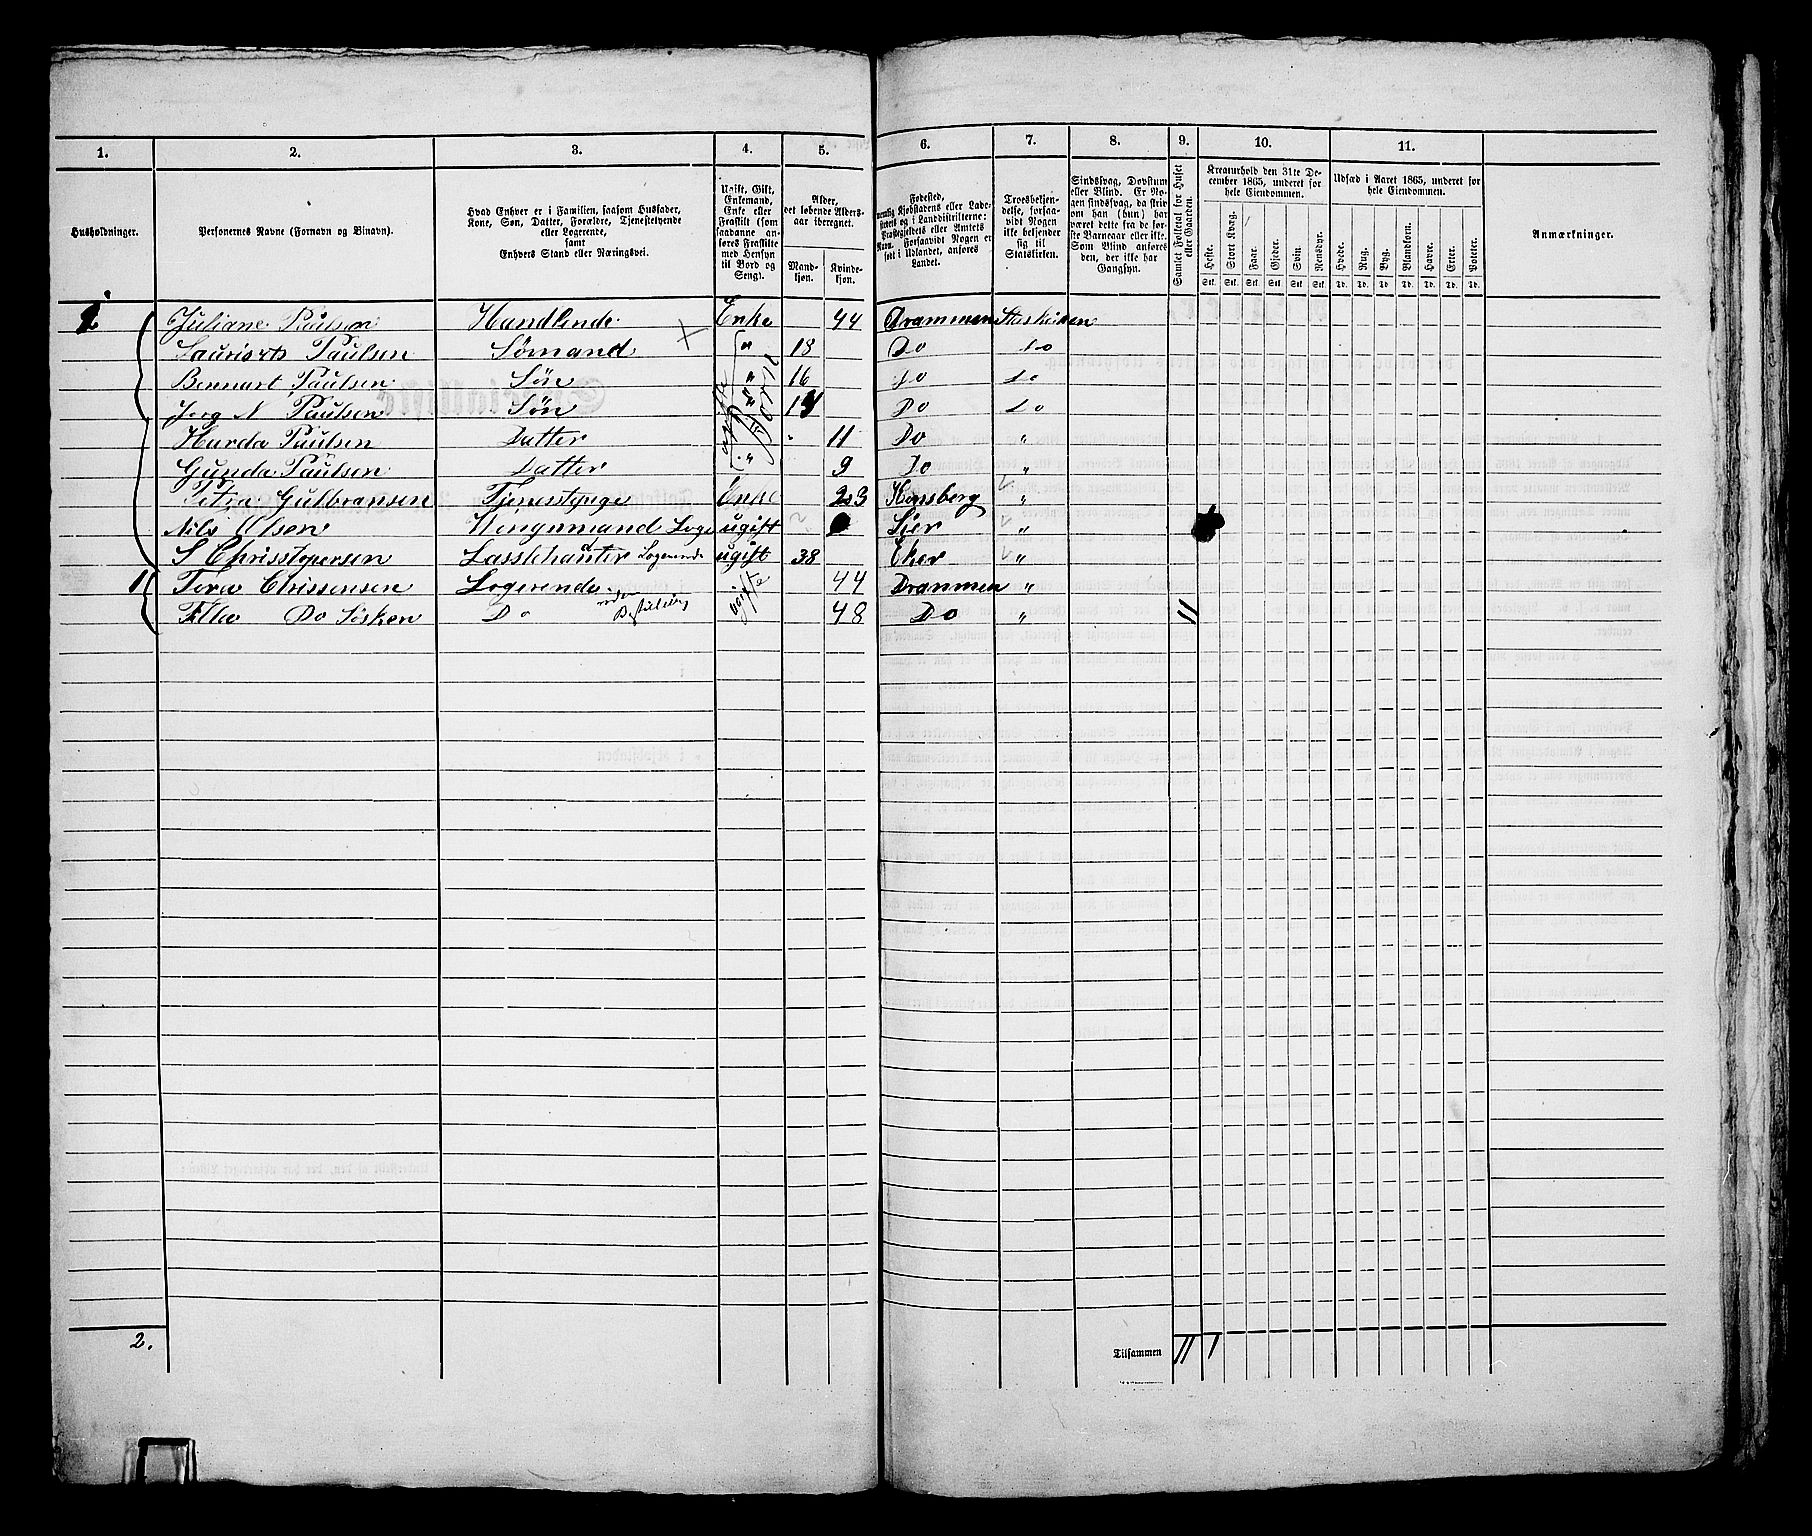 1. 2. 3. 4. 5. 6. 7. 8. 9. 10. 11.
Husholdninger.
Personernes Navne (Fornavn og Binavn).
Hvad Enhver er i Familien, saasom Husfader,
Kone, Søn, Datter, Forældre, Tjenestetyende
eller Logerende,
samt
Enhvers Stand eller Næringsvei.
Ugift, Gift,
Enkemand,
Enke eller
Fraskilt (som
saadanne an-
føres Fraskilte
med Hensyn
til Bord og
Seng).
Alder,
det løbende Alders-
aar iberegnet.
Mand-
kjøn.
Kvinde-
kjøn.
Fødested,
nemlig Kjøbstadens eller Lade-
stedets og i Landdistrikterne:
Præstegjeldets eller Amtets
Navn. Forsaavidt Nogen er
født i Udlandet, anføres
Landet.
Troesbekjen-
delse, forsaa-
vidt Nogen
ikke bekjender
sig til
Statskirken.
Sindssvag, Døvstum
eller Blind. Er No-
gen sindssvag, da skriv
om han (hun) har
været dette fra de før-
ste Barneaar eller ikke.
Som Blind anføres
den, der ikke har
Gangsyn.
Samlet Folketal for Huset
eller Gaarden.
Kreaturhold den 31te De-
cember 1865, underet for
hele Eiendommen.
Heste. Stort Kvæg. Faar. Gjeder. Svin. Rensdyr.
Stk. Stk. Stk. Stk. Stk. Stk.
Udsæd i Aaret 1865, underet for
hele Eiendommen.
Hvede. Rug. Byg. Blandkorn. Havre. Erter. Poteter.
Td. Td. Td. Td. Td. Td. Td.
Anmærkninger.
Juliane Paulsen Handlende Enke 44 Drammen Staskirken
Paulsen Sømand " 18 Do Do
Bennart Paulsen Søn " 16 Do Do
Jørg N Paulsen Søn " Do Do
Hurda Paulsen Datter 11 Do "
Gunda Paulsen Datter " 9 Do "
Petra Gulbransen Enke "
Nils Olsen Loge ugift Lier "
S Chrisstopersen Logerende ugift 38 Eker "
11 Tora Chrissensen Logerende 44 Drammen "
Do Søsken Do 48 Do " 11
2.
Tilsammen 11 1